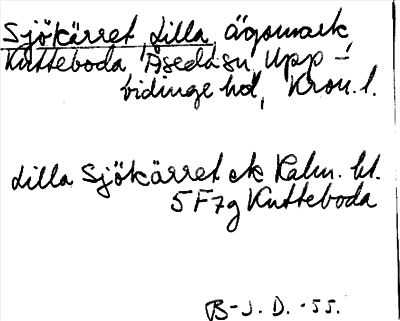 Sjökärret, Lilla, ägomark,
Kutteboda Åseda sn, Upp-
vidinge hd, Kron. l.
Lilla Sjökärret ek Kalm. bl.
5F7g Kutteboda
B-J. D. -55.